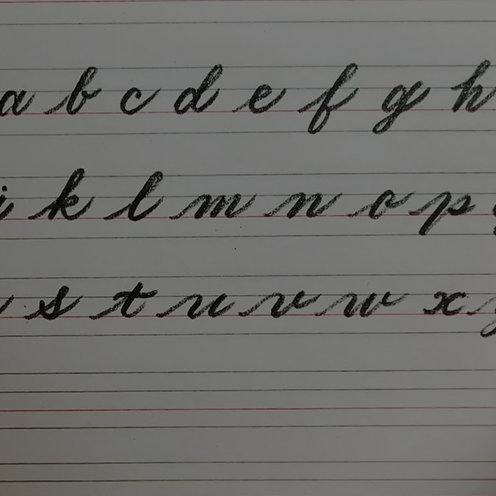 a b c d e f g h
k l m n o p
s t u v w x